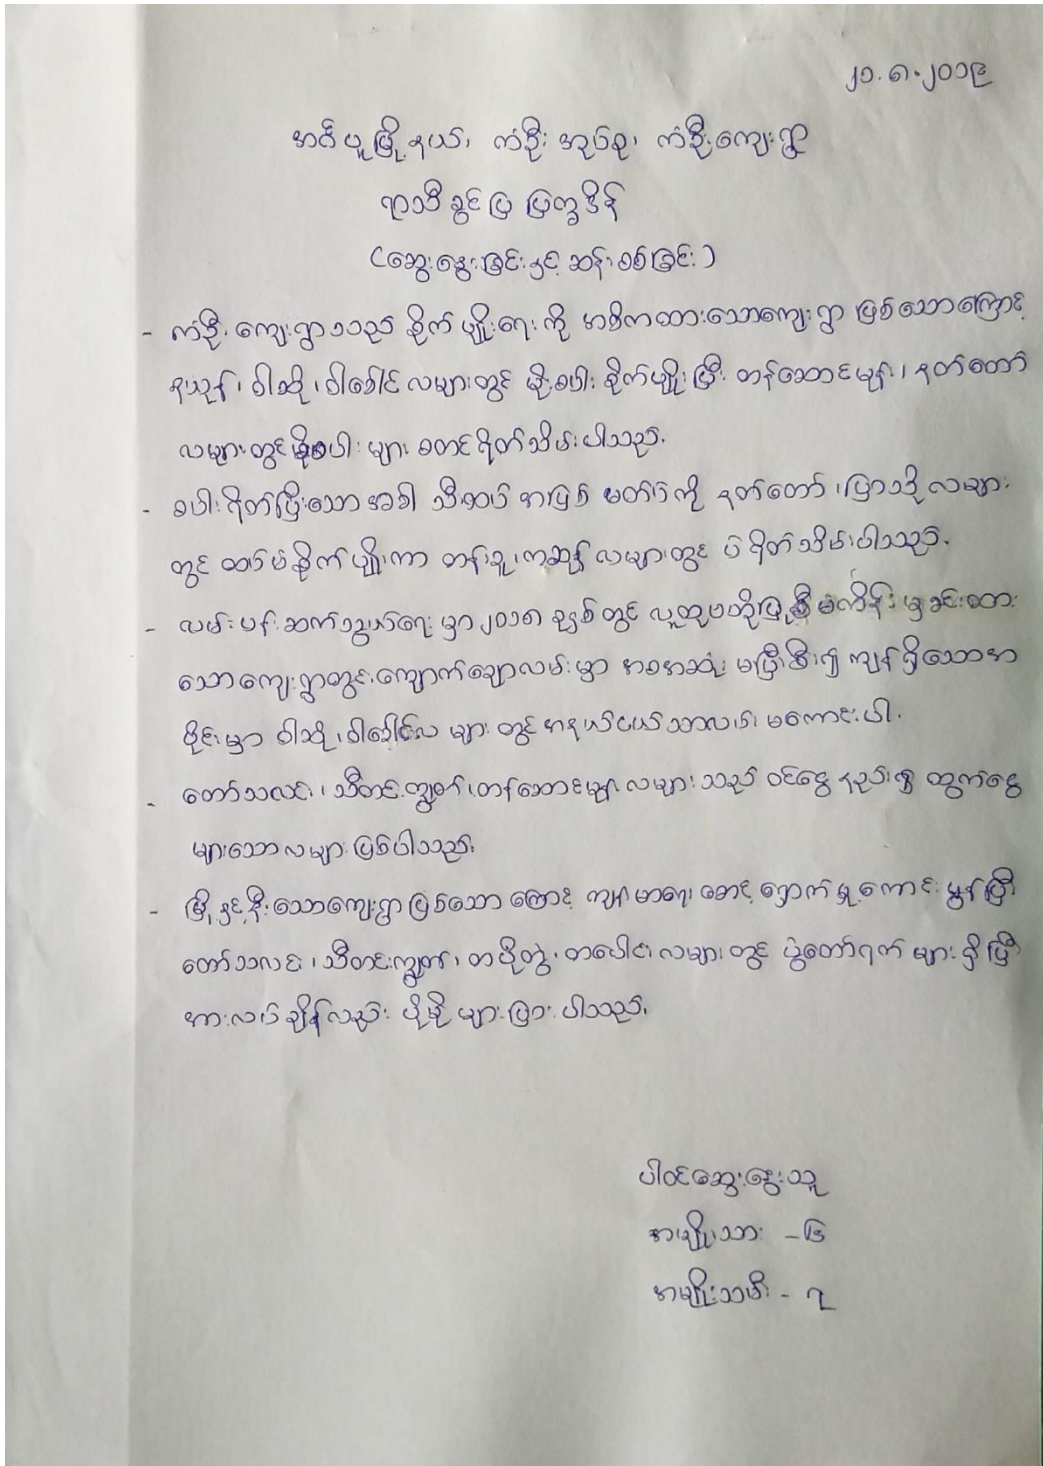 ၂၁.၈.၂၀၁၉
အင်ပူမြို့နယ်၊ ကံဦး အုပ်စု၊ ကံဦးကျေးရွာ
ရာသီခွင်ပြ ပြက္ခဒိန်
(ဆွေးနွေးခြင်းနှင့် ဆန်းစစ်ခြင်း)
- ကံဦးကျေးရွာသည် စိုက်ပျိုးရေးကို အဓိကထားသောကျေးရွာ ဖြစ်သောကြောင့်
နယုန်၊ ဝါဆို၊ ဝါခေါင် လများတွင် မိုးစပါး စိုက်ပျိုးပြီး တန်ဆောင်မုန်း၊ နတ်တော်
လများတွင် မိုးစပါးများ စတင်ရိတ်သိမ်းပါသည်.
- စပါးရိတ်ပြီးသောအခါ သီးထပ်အဖြစ် မတ်ပဲကို နတ်တော်၊ ပြာသို လများ
တွင် ထပ်မံစိုက်ပျိုးကာ တန်ခူး၊ ကဆုန် လများတွင် ပဲရိတ်သိမ်းပါသည်.
- လမ်းပန်းဆက်သွယ်ရေးမှာ ၂၀၁၈ ခုနှစ်တွင် လူထုဗဟိုပြုစီမံကိန်းမှခင်းထား
သောကျေးရွာတွင်းကျောက်ချောလမ်းမှာ အစအဆုံး မပြီးစီး၍ ကျန်ရှိသောအ
ပိုင်းမှာ ဝါဆို၊ ဝါခေါင်လ များတွင် အနယ်ငယ်သာလမ်း မကောင်းပါ.
- တော်သလင်း၊ သီတင်းကျွတ်၊ တန်ဆောင်မုန်း လများသည် ဝင်ငွေ နည်း၍ ထွက်ငွေ
များသော လများ ဖြစ်ပါသည်.
- မြို့နှင့်နီးသောကျေးရွာ ဖြစ်သောကြောင့် ကျန်းမာရေး စောင့်ရှောက်မှု ကောင်းမွန်ပြီး
တော်သလင်း၊ သီတင်းကျွတ်၊ တပို့တွဲ၊ တပေါင်းလများတွင် ပွဲတော်ရက်များ ရှိပြီး
အားလပ်ချိန်လည်း ပိုမို များပြားပါသည်.
ပါဝင်ဆွေးနွေးသူ
အမျိုးသား - ၆
အမျိုးသမီး - ၇